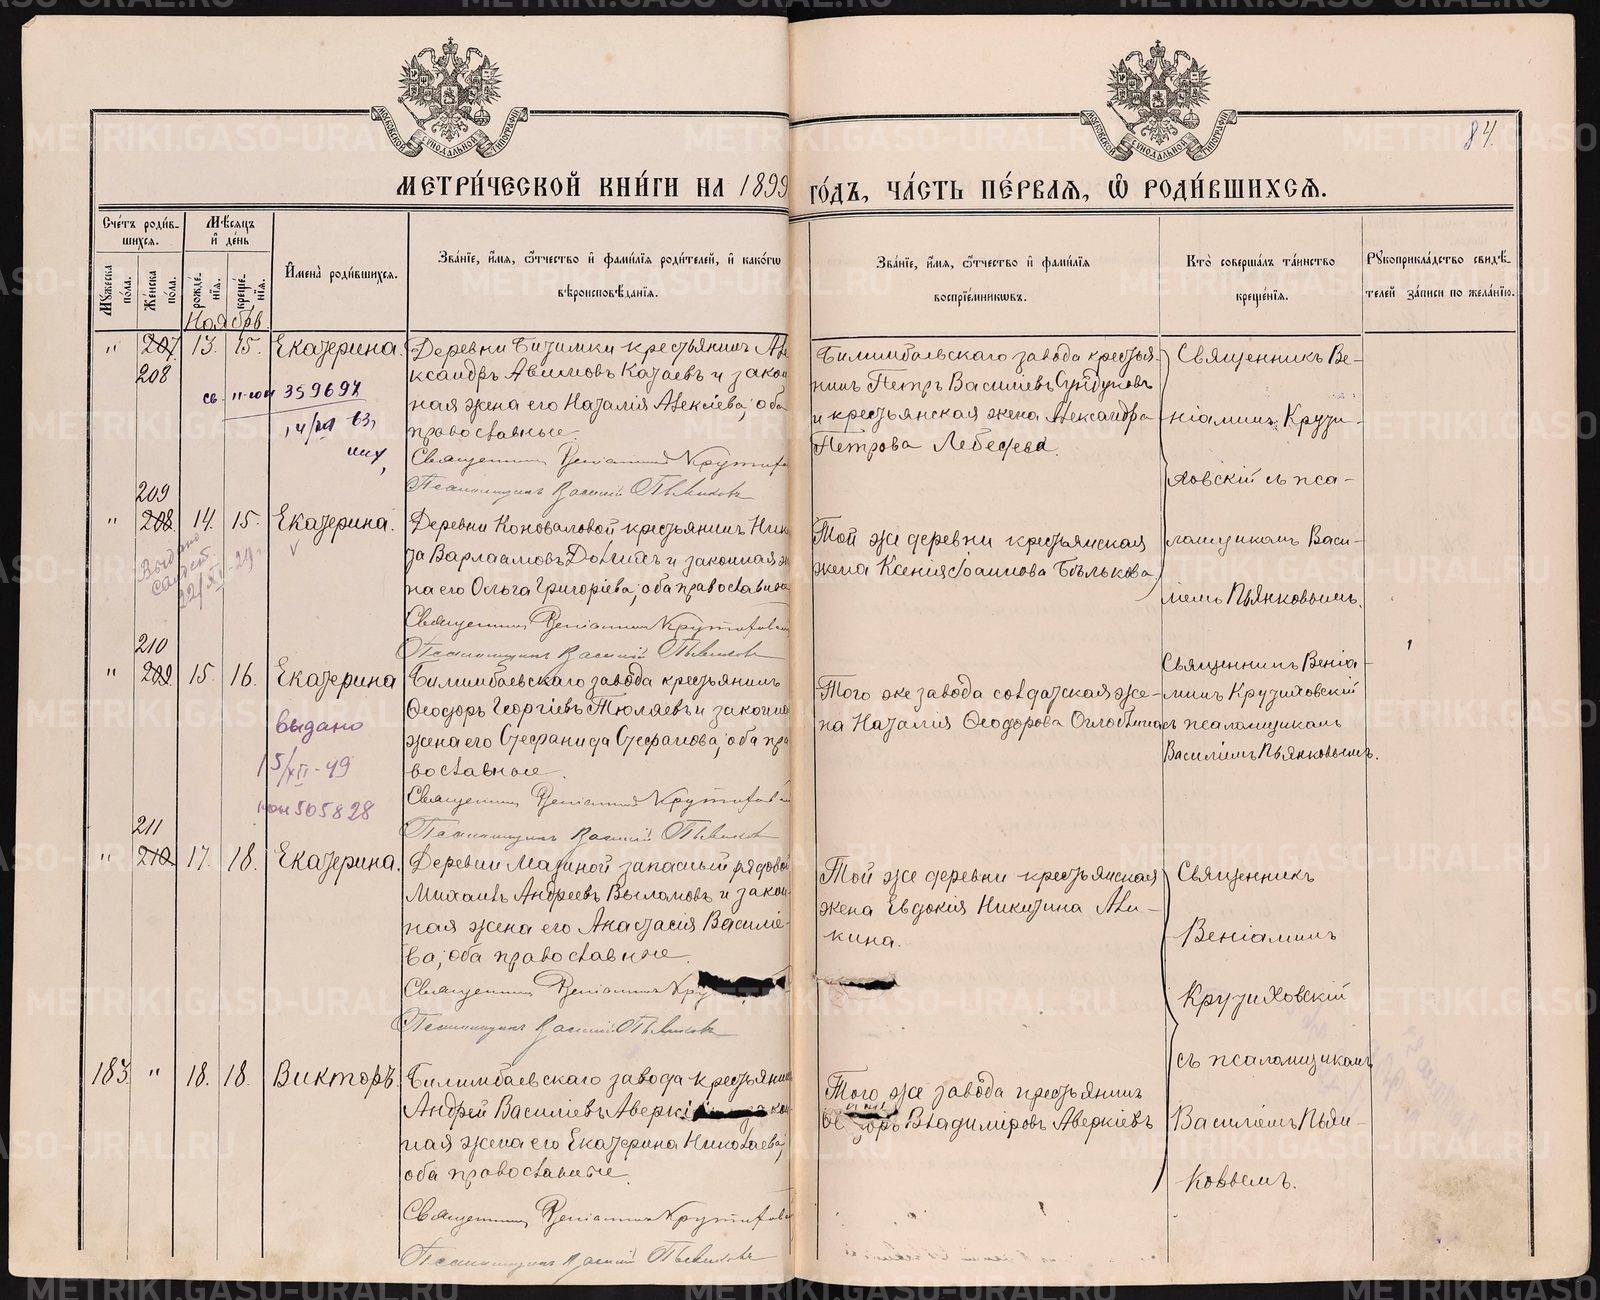 МЕТРИ́ЧЕСКОЙ КНИ́ГИ НА 1899 ГО́ДЪ, ЧА́СТЬ ПЕ́РВАЯ, Ѡ РОДИ́ВШИХСЯ.
84.
Сче́тъ роди́в-
шихся.
Мѣ́сяцъ
и҆ де́нь
Мꙋ́жеска по́ла.
Же́нска по́ла.
рожде́нїя.
креще́нїя.
И҆мена̀ роди́вшихся.
Зва́нїе, и҆́мя, ѻ҆́тчество и҆ фами́лїя роди́телей, и҆ како́гѡ
вѣроисповѣ́данїя.
Зва́нїе, и҆́мя, ѻ҆́тчество и҆ фами́лїя
воспрїе́мниковъ.
Кто̀ соверша́лъ та́инство
креще́нїя.
Рꙋкоприкла́дство свидѣ́-
телей за́писи по жела́нїю.
Ноябрь
" 207 13. 15. Екатерина.
208
359697
Деревни Битимки крестьянинъ Але
ксандръ Авимовъ Катаевъ и закон
ная жена его Наталія Алексіева, оба
православные.
Священникъ Веніаминъ
Псаломщикъ Василій Пьянковъ
Билимбаевскаго завода крестья-
нинъ Петръ Василіевъ
и крестьянская жена Александра
Петрова Лебедева.
Священникъ Ве-
ніаминъ Крути-
ховскій съ пса-
ломщикомъ Васи-
ліемъ Пьянковымъ.
209
" 208 14. 15. Екатерина.
Выдано
22/XI-29
Деревни Коноваловой крестьянинъ Ники
та Варлаамовъ и законная же
на его Ольга Григоріева, оба православные
Священникъ Веніаминъ Крутиховскій
Псаломщикъ Василій Пьянковъ
Той же деревни крестьянская
жена Ксенія Іоаннова Бѣлькова
210
" 209 15. 16. Екатерина
выдано
15/XII-49
505828
Билимбаевскаго завода крестьянинъ
Ѳеодоръ Георгіевъ Тюляевъ и законная
жена его Стефанида Стефанова, оба пра
вославные.
Священникъ Веніаминъ Крутиховскій
Псаломщикъ Василій Пьянковъ
Того же завода солдатская же-
на Наталія Ѳеодорова Оглоблина
Священникъ Веніа-
минъ Крутиховскій
съ псаломщикомъ
Василіемъ Пьянковымъ.
211
" 210 17. 18. Екатерина.
Деревни Мазиной запасный рядовой
Михаилъ Андреевъ Выломовъ и закон
ная жена его Анастасія Василіе-
ва, оба православные.
Священникъ Веніаминъ
Псаломщикъ Василій Пьянковъ
Той же деревни крестьянская
жена Евдокія Никитина Али-
кина.
Священникъ
Веніаминъ
Крутиховскій
съ псаломщикомъ
Василіемъ Пьян-
ковымъ.
183. " 18. 18. Викторъ.
Билимбаевскаго завода крестьянинъ
Андрей Василіевъ
ная жена его Екатерина Николаева,
оба православные.
Священникъ Веніаминъ
Псаломщикъ Василій Пьянковъ
Того же завода крестьянинъ
Владиміровъ Аверкіевъ
METRIKI.GASO-URAL.RU